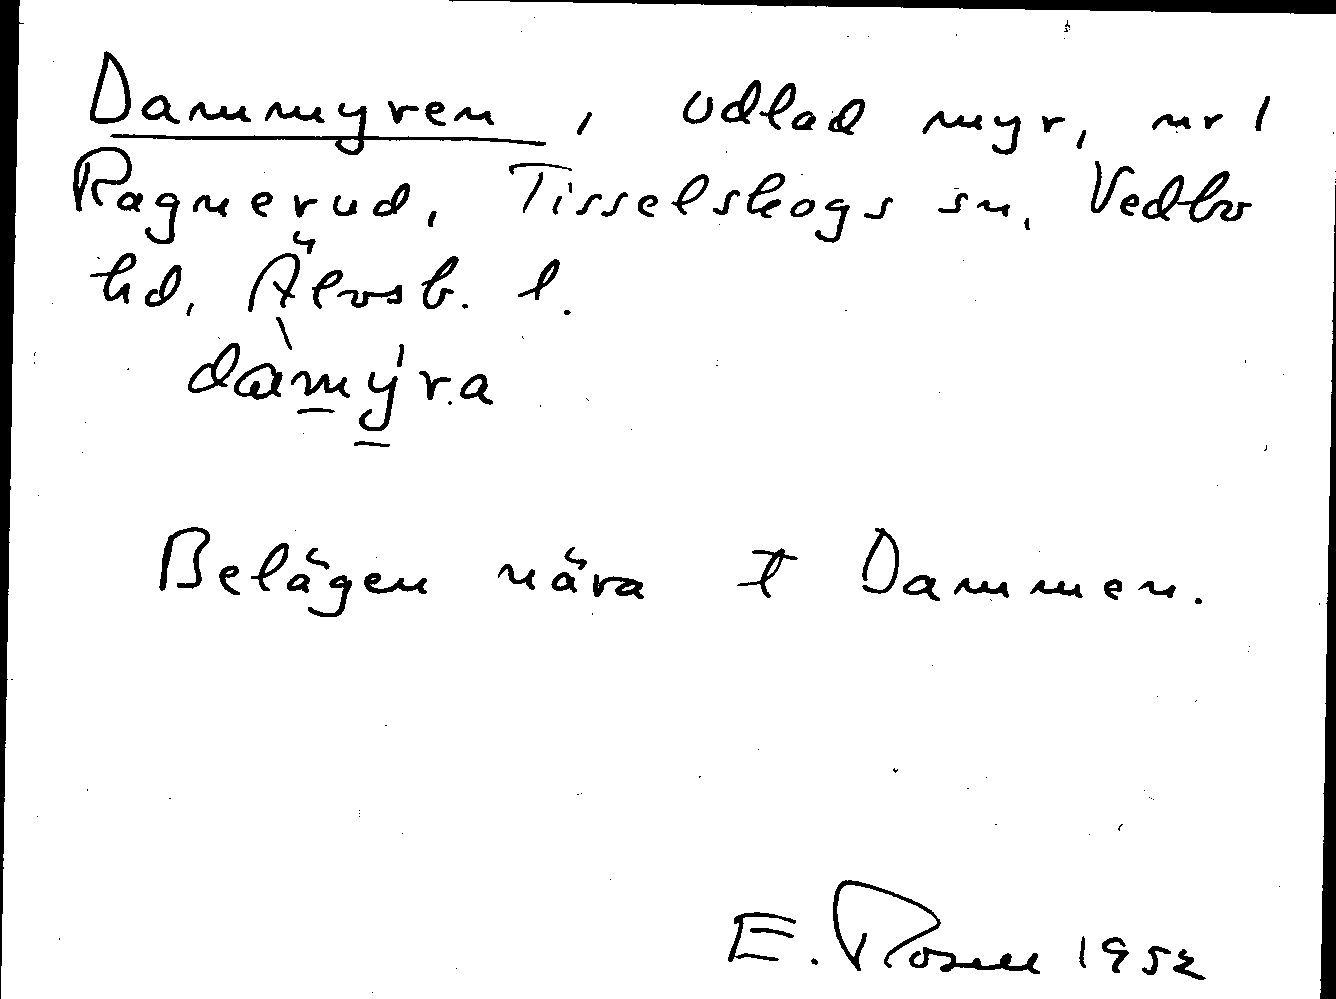 Dammyren, odlad myr, nr 1
Ragnerud, Tisselskogs sn, Vedbo
hd, Älvsb. l.
dàmy̍ra
Belägen nära Ɨ Dammen.
E. Rosell 1952